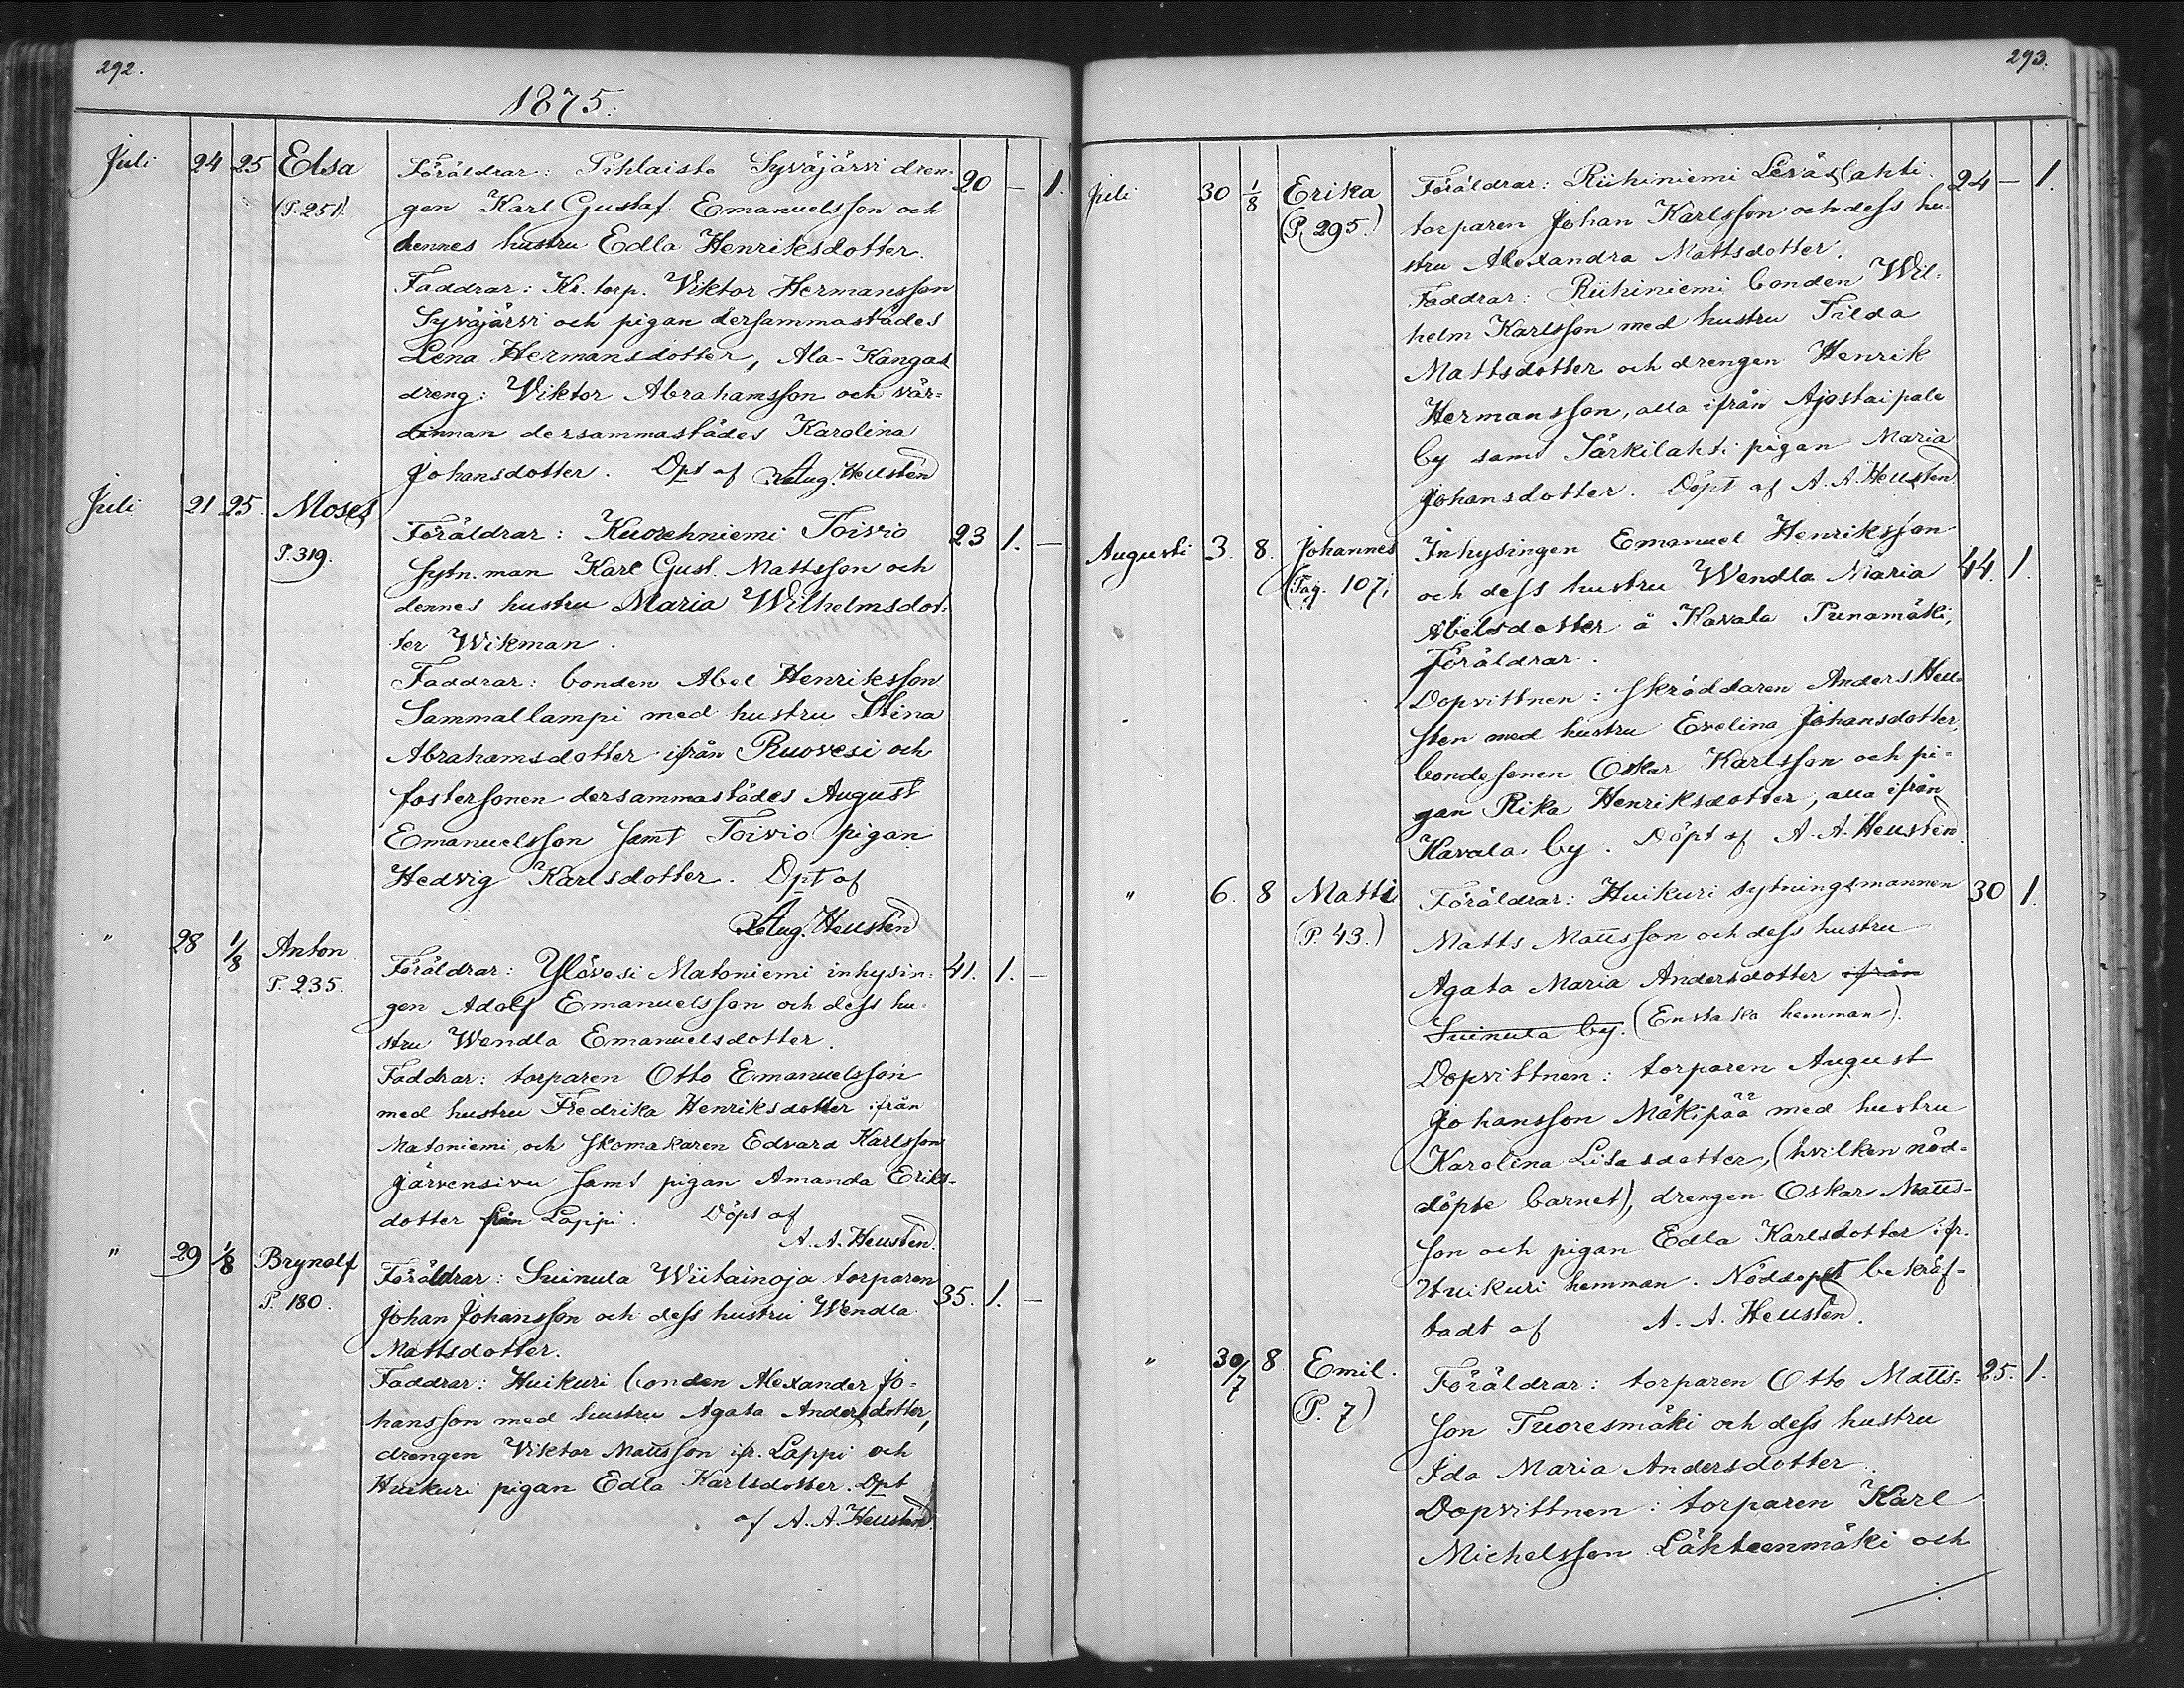 292.
1875.
Juli 24 25 Elsa Föräldrar: Pihlaisto Syväjärvi dren- 20 — 1.
(P. 251). gen Karl Gustaf Emanuelsson och
hennes hustru Edla Henriksdotter.
Faddrar: Kr. torp. Viktor Hermansson
Syväjärvi och pigan dersammastädes
Lena Hermansdotter, Ala-Kangas
dreng: Viktor Abrahamsson och vär-
dinnan dersammastädes Karolina
Johansdotter. Dpt af Aug. Heustén
Juli 21 25. Moses Föräldrar: Kuorehniemi Toivio 23 1. —
P. 319. sytn.man Karl Gust. Mattsson och
dennes hustru Maria Wilhelmsdot-
ter Wikman.
Faddrar: bonden Abel Henriksson
Sammallampi med hustru Stina
Abrahamsdotter ifrån Ruovesi och
fostersonen dersammastädes August
Emanuelsson samt Toivio pigan
Hedvig Karlsdotter. Dpt af
Aug. Heustén
" 28 1/8 Anton Föräldrar: Ylövesi Matoniemi inhysin- 41. 1. —
P. 235. gen Adolf Emanuelsson och dess hu-
stru Wendla Emanuelsdotter.
Faddrar: torparen Otto Emanuelsson
med hustru Fredrika Henriksdotter ifrån
Matoniemi, och skomakaren Edvard Karlsson
Järvensivu samt pigan Amanda Eriks-
dotter från Lappi. Döpt af
A. A. Heustén.
" 29 1/8 Brynolf Föräldrar: Suinula Wiitainoja torparen 35. 1. —
P. 180. Johan Johansson och dess hustru Wendla
Mattsdotter.
Faddrar: Huikuri bonden Alexander Jo-
hansson med hustru Agata Andersdotter,
drengen Viktor Mattsson ifr. Lappi och
Huikuri pigan Edla Karlsdotter. Dpt
af A. A. Heustén.
293.
Juli 30 1/8 Erika Föräldrar: Riihiniemi Leväslahti 24 — 1.
(P. 295.) torparen Johan Karlsson och dess hu-
stru Alexandra Mattsdotter.
Faddrar: Riihiniemi bonden Wil-
helm Karlsson med hustru Tilda
Mattsdotter och drengen Henrik
Hermansson, alla ifrån Ajostaipale
by samt Särkilahti pigan Maria
Johansdotter. Döpt af A. A. Heustén
Augusti 3. 8. Johannes Inhysingen Emanuel Henriksson 44. 1.
(Pag. 107. och dess hustru Wendla Maria
Abelsdotter å Kavala Punamäki,
Föräldrar.
Dopvittnen: skräddaren Anders Heu-
stén med hustru Evelina Johansdotter,
bondesonen Oskar Karlsson och pi-
gan Rika Henriksdotter, alla ifrån
Kavala by. Döpt af A. A. Heustén
" 6. 8 Matti Föräldrar: Huikuri sytningsmannen 30 1.
(P. 43.) Matts Mattsson och dess hustru
Agata Maria Andersdotter ifrån
Suinula by. (Enstaka hemman).
Dopvittnen: torparen August
Johansson Mäkipää med hustru
Karolina Lisasdotter, (hvilken nöd-
döpte barnet), drengen Oskar Matts-
son och pigan Edla Karlsdotter ifr.
Huikuri hemman. Nöddopet bekräf-
tadt af A. A. Heustén.
" 30/7 8 Emil. Föräldrar: torparen Otto Matts- 25. 1.
(P. 7) son Tuoresmäki och dess hustru
Ida Maria Andersdotter.
Dopvittnen: torparen Karl
Michelsson Lähteenmäki och